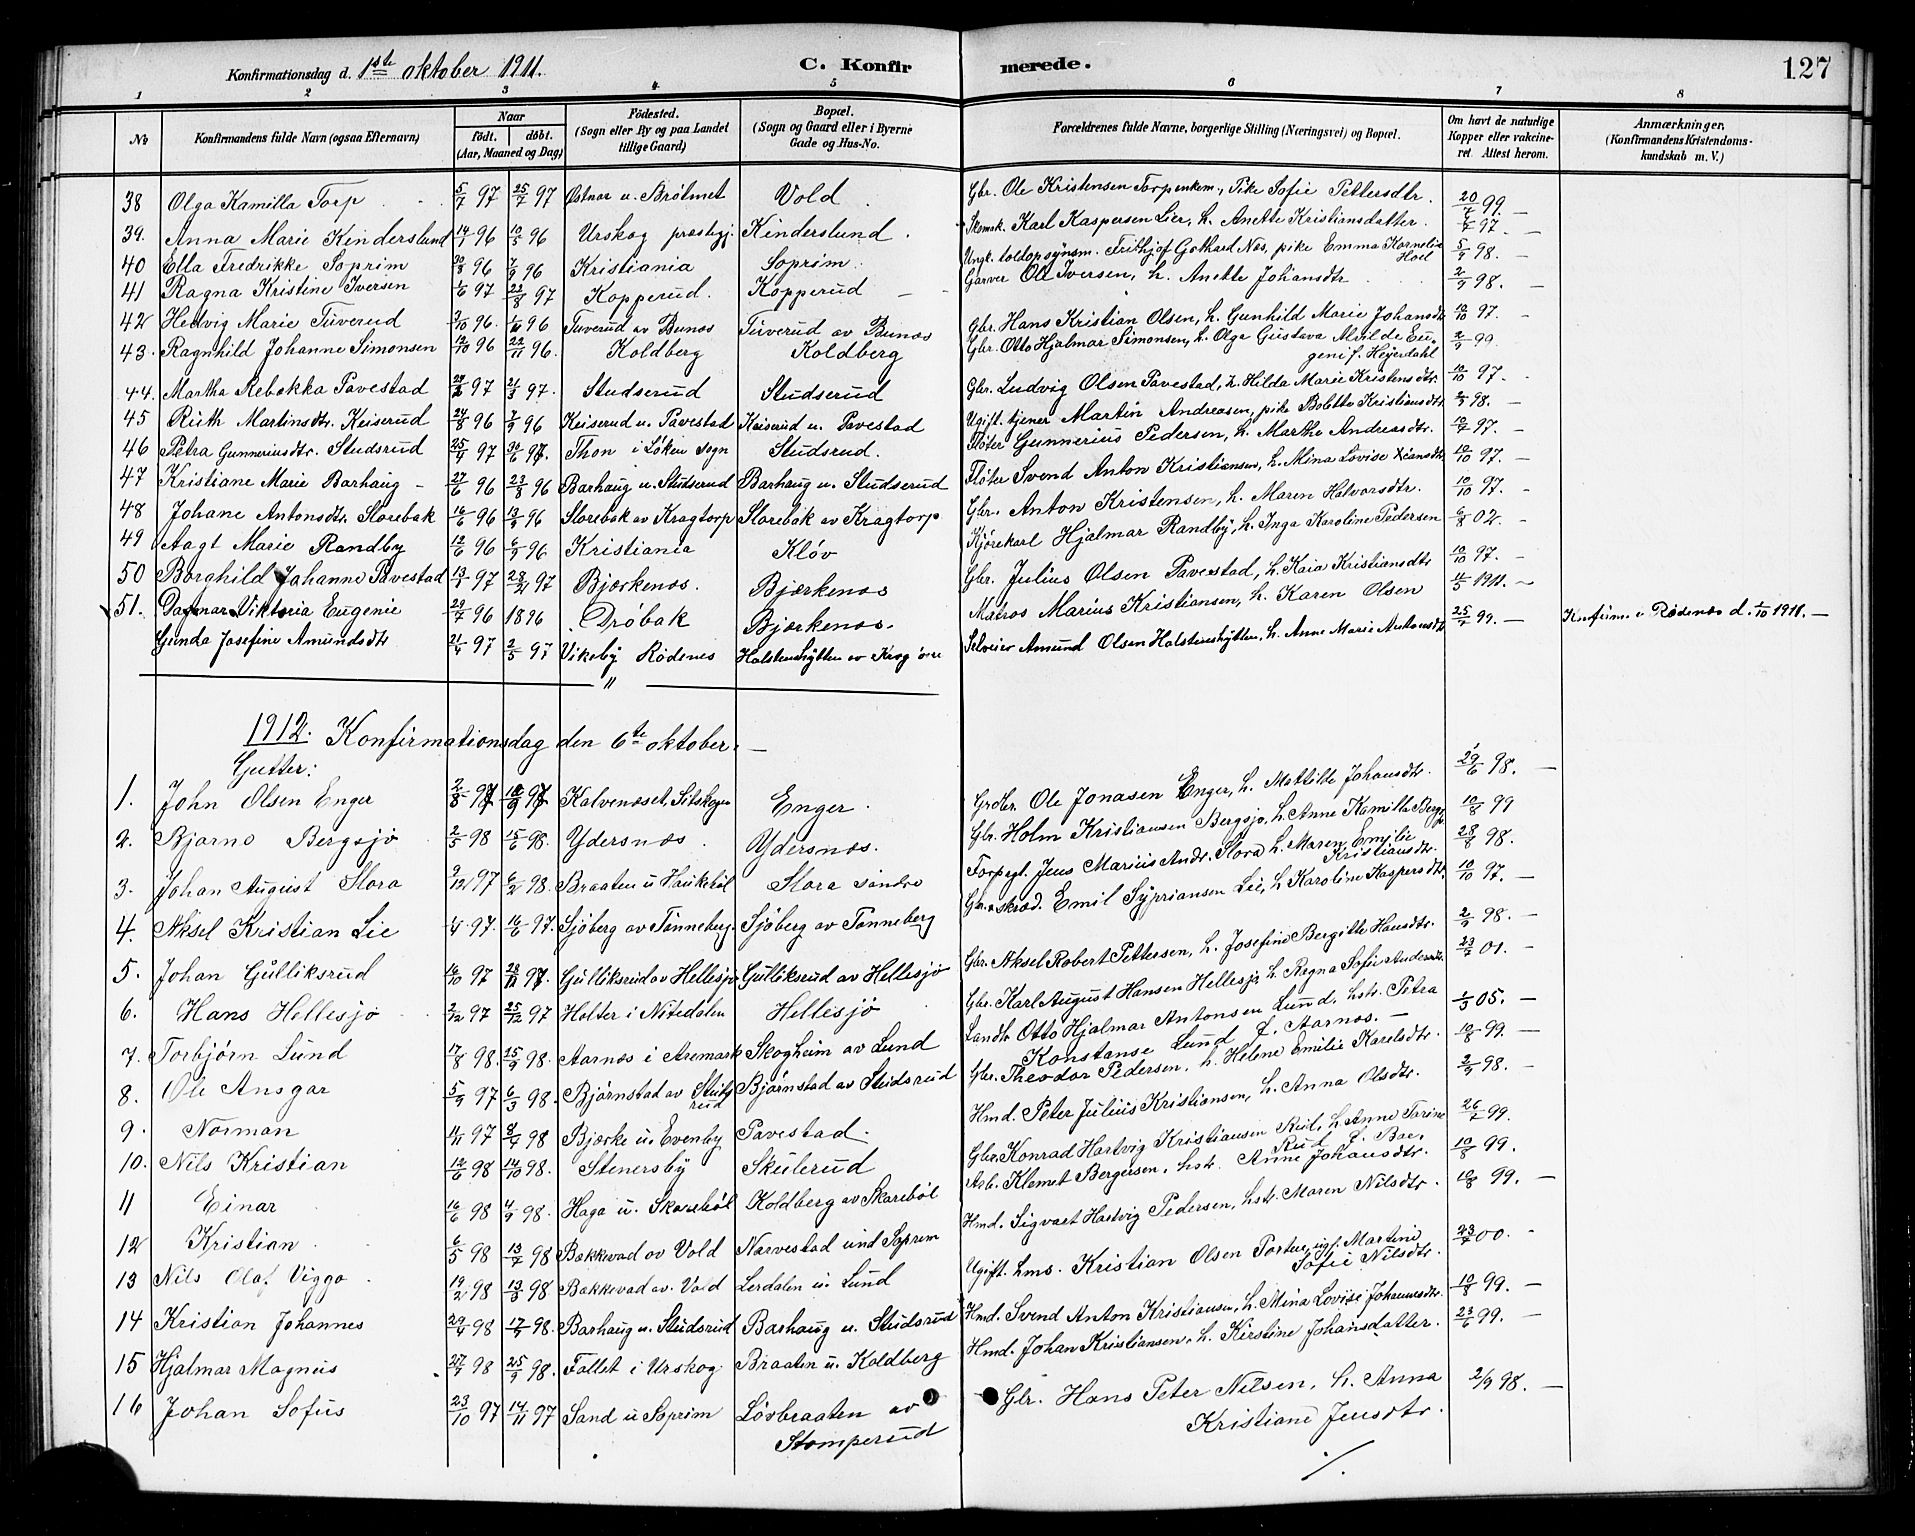 Konfirmationsdag d. 1ste oktober 1911. C. Konfirmerede. 127
1 2 3 4 5 6 7 8
No Konfirmandens fulde Navn (ogsaa Efternavn) Naar født. døbt. (Aar, Maaned og Dag) Fødested. (Sogn eller By og paa Landet tillige Gaard) Bopæl. (Sogn og Gaard eller i Byerne Gade og Hus-No. Forældrenes fulde Navne, borgerlige Stilling (Næringsvei) og Bopæl. Om havt de naturlige Kopper eller vakcineret. Attest herom. Anmærkninger. (Konfirmandens Kristendomskundskab m. V.)
38 Olga Kamilla Torp 5/7 97 25/7 97 Østnor u. Brøtmet Vold Gbr. Ole Kristensen Torpenkem., Pike Sofie Pettersdtr. 20/7 99 —
39. Anna Marie Kinderslund 14/1 96 10/5 96 Urskog præstegj. Kinderslund Skomak. Karl Kaspersen Lier, h. Anette Kristiansdatter 97. —
40 Ella Fredrikke Soprim 30/8 96 7/9 96 Kristiania Soprim Ungk. toldopsynsm. Frithjof Gothard Næs, pike Emma Kornelia Hoel 5/9 98. —
41 Ragna Kristine Iversen 1/6 97 22/8 97 Kopperud. Kopperud Garver Ole Iversen, h. Anette Johansdtr 2/9 98. —
42 Hedvig Marie Tuverud 3/10 96. 96 Tuverud av Bunæs Tuverud av Bunæs Gbr. Hans Kristian Olsen, h. Gunhild Marie Johansdtr 10/10 97. —
43. Ragnhild Johanne Simonsen 12/10 96 22/11 96. Koldberg Koldberg Gbr. Otto Hjalmar Simonsen, h. Olga Gustava Alvilde Eugeni f. Heyerdahl 2/9 99
44. Martha Rebekka Pavestad 97 21/3 97. Studserud Studserud Gbr. Ludvig Olsen Pavestad, h. Hilda Marie Kristensdtr. 10/10 97.
45 Ruth Martinsdtr. Keiserud 24/8 96 7/9 96 Keiserud u. Pavestad Keiserud u. Pavestad Ugift tjener Martin Andreasen, pike Bolette Kristiansdtr 2/9 98. —
46 Petra Gunneriusdtr. Studsrud 25/4 97 30/6 97. Thon i Løken sogn Studsrud. Fløter Gunnerius Pedersen, h. Marthe Andreasdtr. 97. —
47 Kristiane Marie Barhaug 27/6 96 23/8 96 Barhaug u. Studserud Barhaug u. Studserud Fløter Svend Anton Kristiansen, h. Mina Lovise Xiansdtr 10/10 97. —
48 Johane Antonsdtr. Storebæk 14/6 96 13/9 96 Storebæk av Kragtorp Storebæk av Kragtorp Gbr. Anton Kristensen, h. Maren Halvorsdtr. 10/10 97. —
49 Aagt Marie Randby 12/6 96 6/9 96 Kristiania Kløv Kjørekarl Hjalmar Randby, h. Inga Karoline Pedersen 6/8 02. —
50 Borghild Johanne Pavestad 13/1 97 28/2 97 Bjærkenæs. Bjærkenæs Gbr. Julius Olsen Pavestad, h. Kaia Kristiansdtr 10/10 97. —
51. Dagmar Viktoria Eugenie 29/7 96 1896 Drøbak Bjærkenæs. Matros Marius Kristiansen, h. Karen Olsen 1911. —
Gunda Josefine Amundsdtr 21/4 97 2/5 97 Vikeby Rødenes Holstenshytten av Krog Selveier Amund Olsen Holstenshytten, h. Anne Marie Antonsdtr 25/7 99. — Konfirm. i Rødenæs d. 1/10 1911. —
1912. Konfirmationsdag den 6te oktober. —
Gutter:
1. John Olsen Enger 2/8 97 97 Kalvenæset, Setskogen Enger. Grdbr. Ole Jonasen Enger, h. Mathilde Johansdtr. 29/6 98. —
2. Bjarne Bergsjø 2/5 98 15/6 98. Ydersnæs Ydersnæs. Gbr. Holm Kristiansen Bergsjø, h. Anne Kamilla Bergsjø 10/8 99
3. Johan August Slora 9/12 97 6/2 98. Braaten u Haukebøl Slora søndre Forpagt. Jens Marius Andr. Slora h. Maren Emilie Kristiansdtr. 28/8 98.
4. Aksel Kristian Lie 97. 16/6 97. Sjøberg av Tønneberg Sjøberg av Tønneberg Gbr. skræd. Emil Sypriansen Lie, h. Karoline Kaspersdtr. 10/10 97. —
5. Johan Gulliksrud 16/10 97 97. Gulliksrud av Hellesjø Gulliksrud av Hellesjø Gbr. Aksel Robert Pettersen, h. Josefine Bergitte Hansdtr. 2/9 98. —
6. Hans Hellesjø 2/12 97 25/12 97 Holter i Nitedalen Hellesjø Gbr. Karl August Hansen Hellesjø, h. Ragna Sofie Andersdtr. 23/7 01. —
7. Torbjørn Lund 17/8 98. 25/9 98. Aarnæs i Aremark Skogheim av Lund Landh. Otto Hjalmar Antonsen Lund, hstr. Petra Konstanse Lund f. Aarnæs. — 1/3 05. —
8. Ole Ansgar 5/9 97 6/3 98. Bjørnstad av Studsrud Bjørnstad av Studsrud Gbr. Theodor Pedersen, h. Helene Emilie Karelsdtr. 10/8 99. —
9. Norman 14/11 97 8/4 98 Bjærke u. Evenby Pavestad. Hmd. Peter Julius Kristiansen, h. Anna Olsdtr. 2/9 98. —
10. Nils Kristian 12/6 98 14/10 98. Stenersby Skulerud Gbr. Konrad Hartvig Kristiansen Rud, h. Anne Tarine Rud f. Boe. 26/7 99.
11 Einar 16/6 98 4/9 98. Haga u. Skarebøl Koldberg av Skarebøl Arb. Klemet Bergersen, hstr. Anne Johansdtr. 10/8 99.
12 Kristian 6/5 98 13/7 98 Bakkevad av Vold Narvestad und Soprim Hmd. Sigvart Hartvig Pedersen, hstr. Maren Nilsdtr. 10/8 99. —
13 Nils Olaf Viggo 19/2 98 13/3 98 Bakkevad av. Vold Lerdalen u. Lund Ugift. hms. Kristian Olsen Porten, ugf. Martine Sofie Nilsdtr. 23/7 00.
14 Kristian Johannes 29/4 98 17/7 98. Barhaug u. Studsrud Barhaug u. Studsrud Hmd. Svend Anton Kristiansen, h. Mina Lovise Johannesdtr. 10/8 99. —
15 Hjalmar Magnus 27/7 98 25/9 98. Fallet i Urskog Braaten u. Koldberg Hmd. Johan Kristiansen, h. Kirstine Johansdatter. 23/6 99. —
16 Johan Sofus 23/10 97 14/11 97 Sand u Soprim Løvbraaten av Stomperud Gbr. Hans Peter Nilsen, h. Anna Kristiane Jensdtr. 2/9 98. —